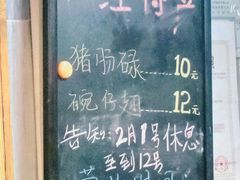 猪肠碌 10元
碗仔翅 12元
告知:2月1号休息
至到12号